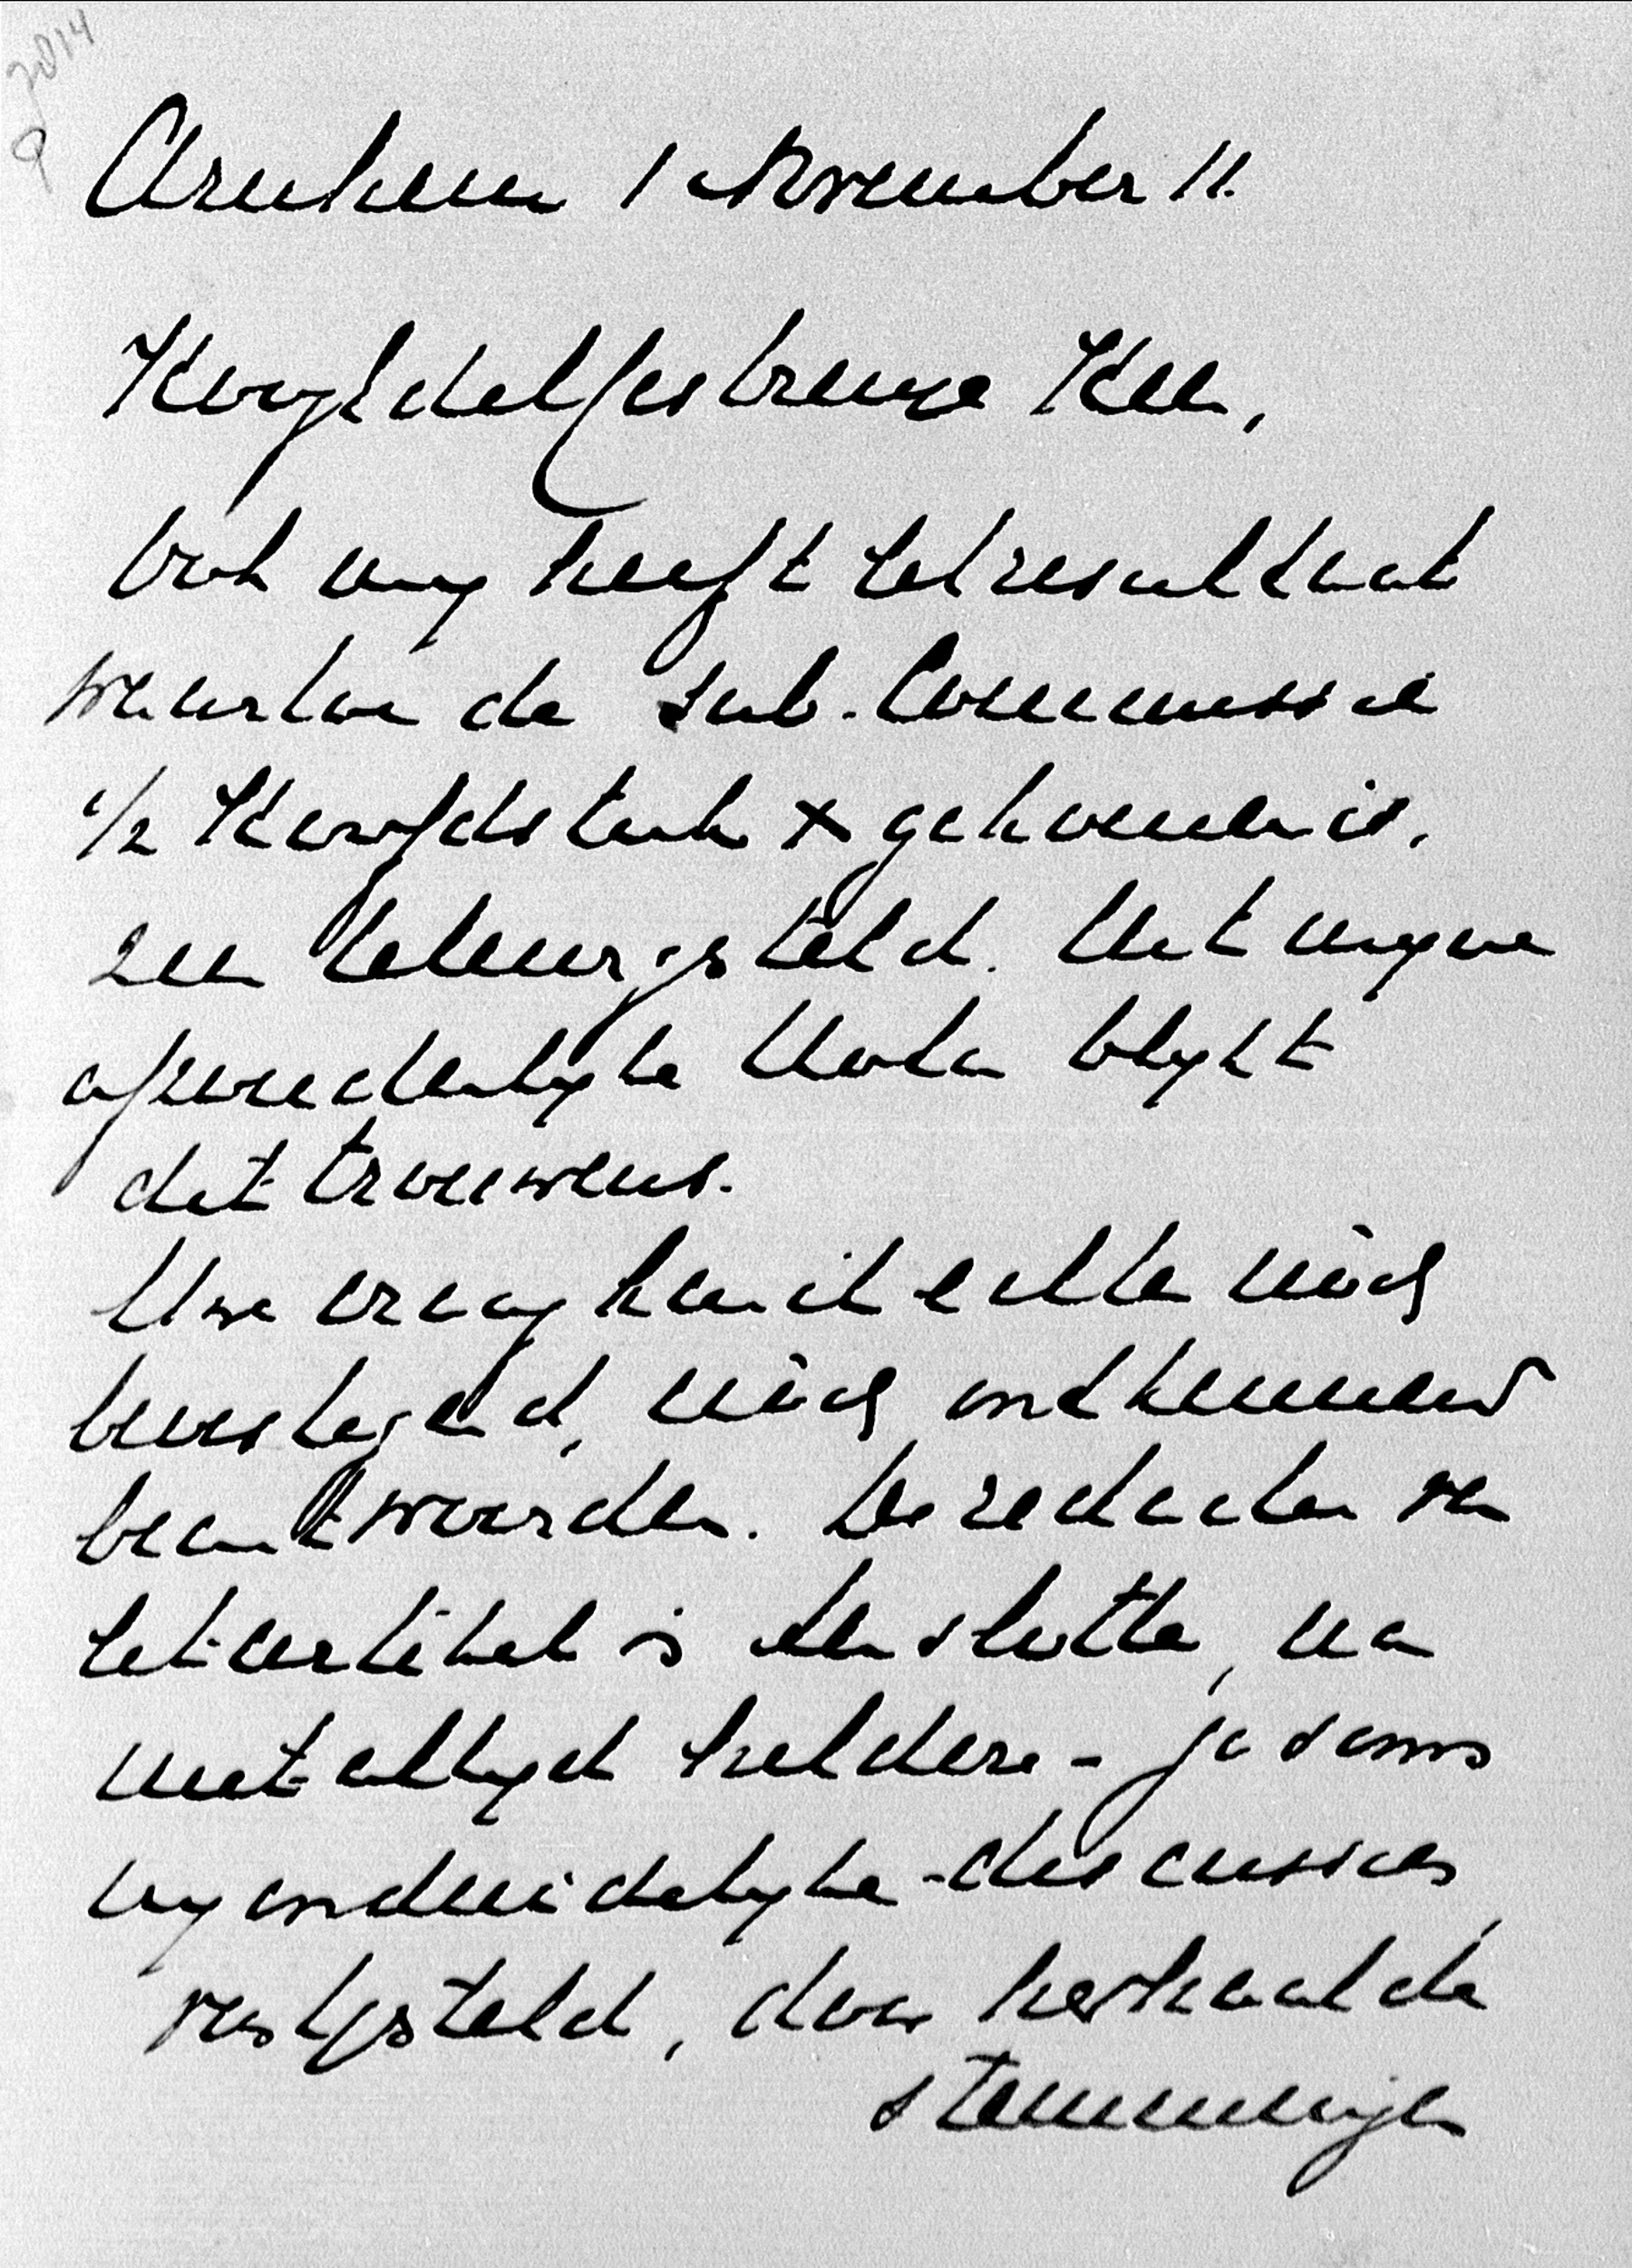 2014
9
Arnhem 1 November 11.
HoogEdelGestrenge Heer,
Ook mij heeft het resultaat
waartoe de Sub-Commissie
i/z Hoofdstuk X gekomen is,
zeer teleurgesteld. Uit mijne
afzonderlijke Nota blijkt
dit trouwens.
Uwe vraag kan ik echter nòch
bevestigend, nòch ontkennend
beantwoorden. De redactie van
het artikel is ten slotte, na
niet altijd heldere - ja soms
bij onduidelijke - discussies,
vastgesteld, door herhaalde
stemmingen